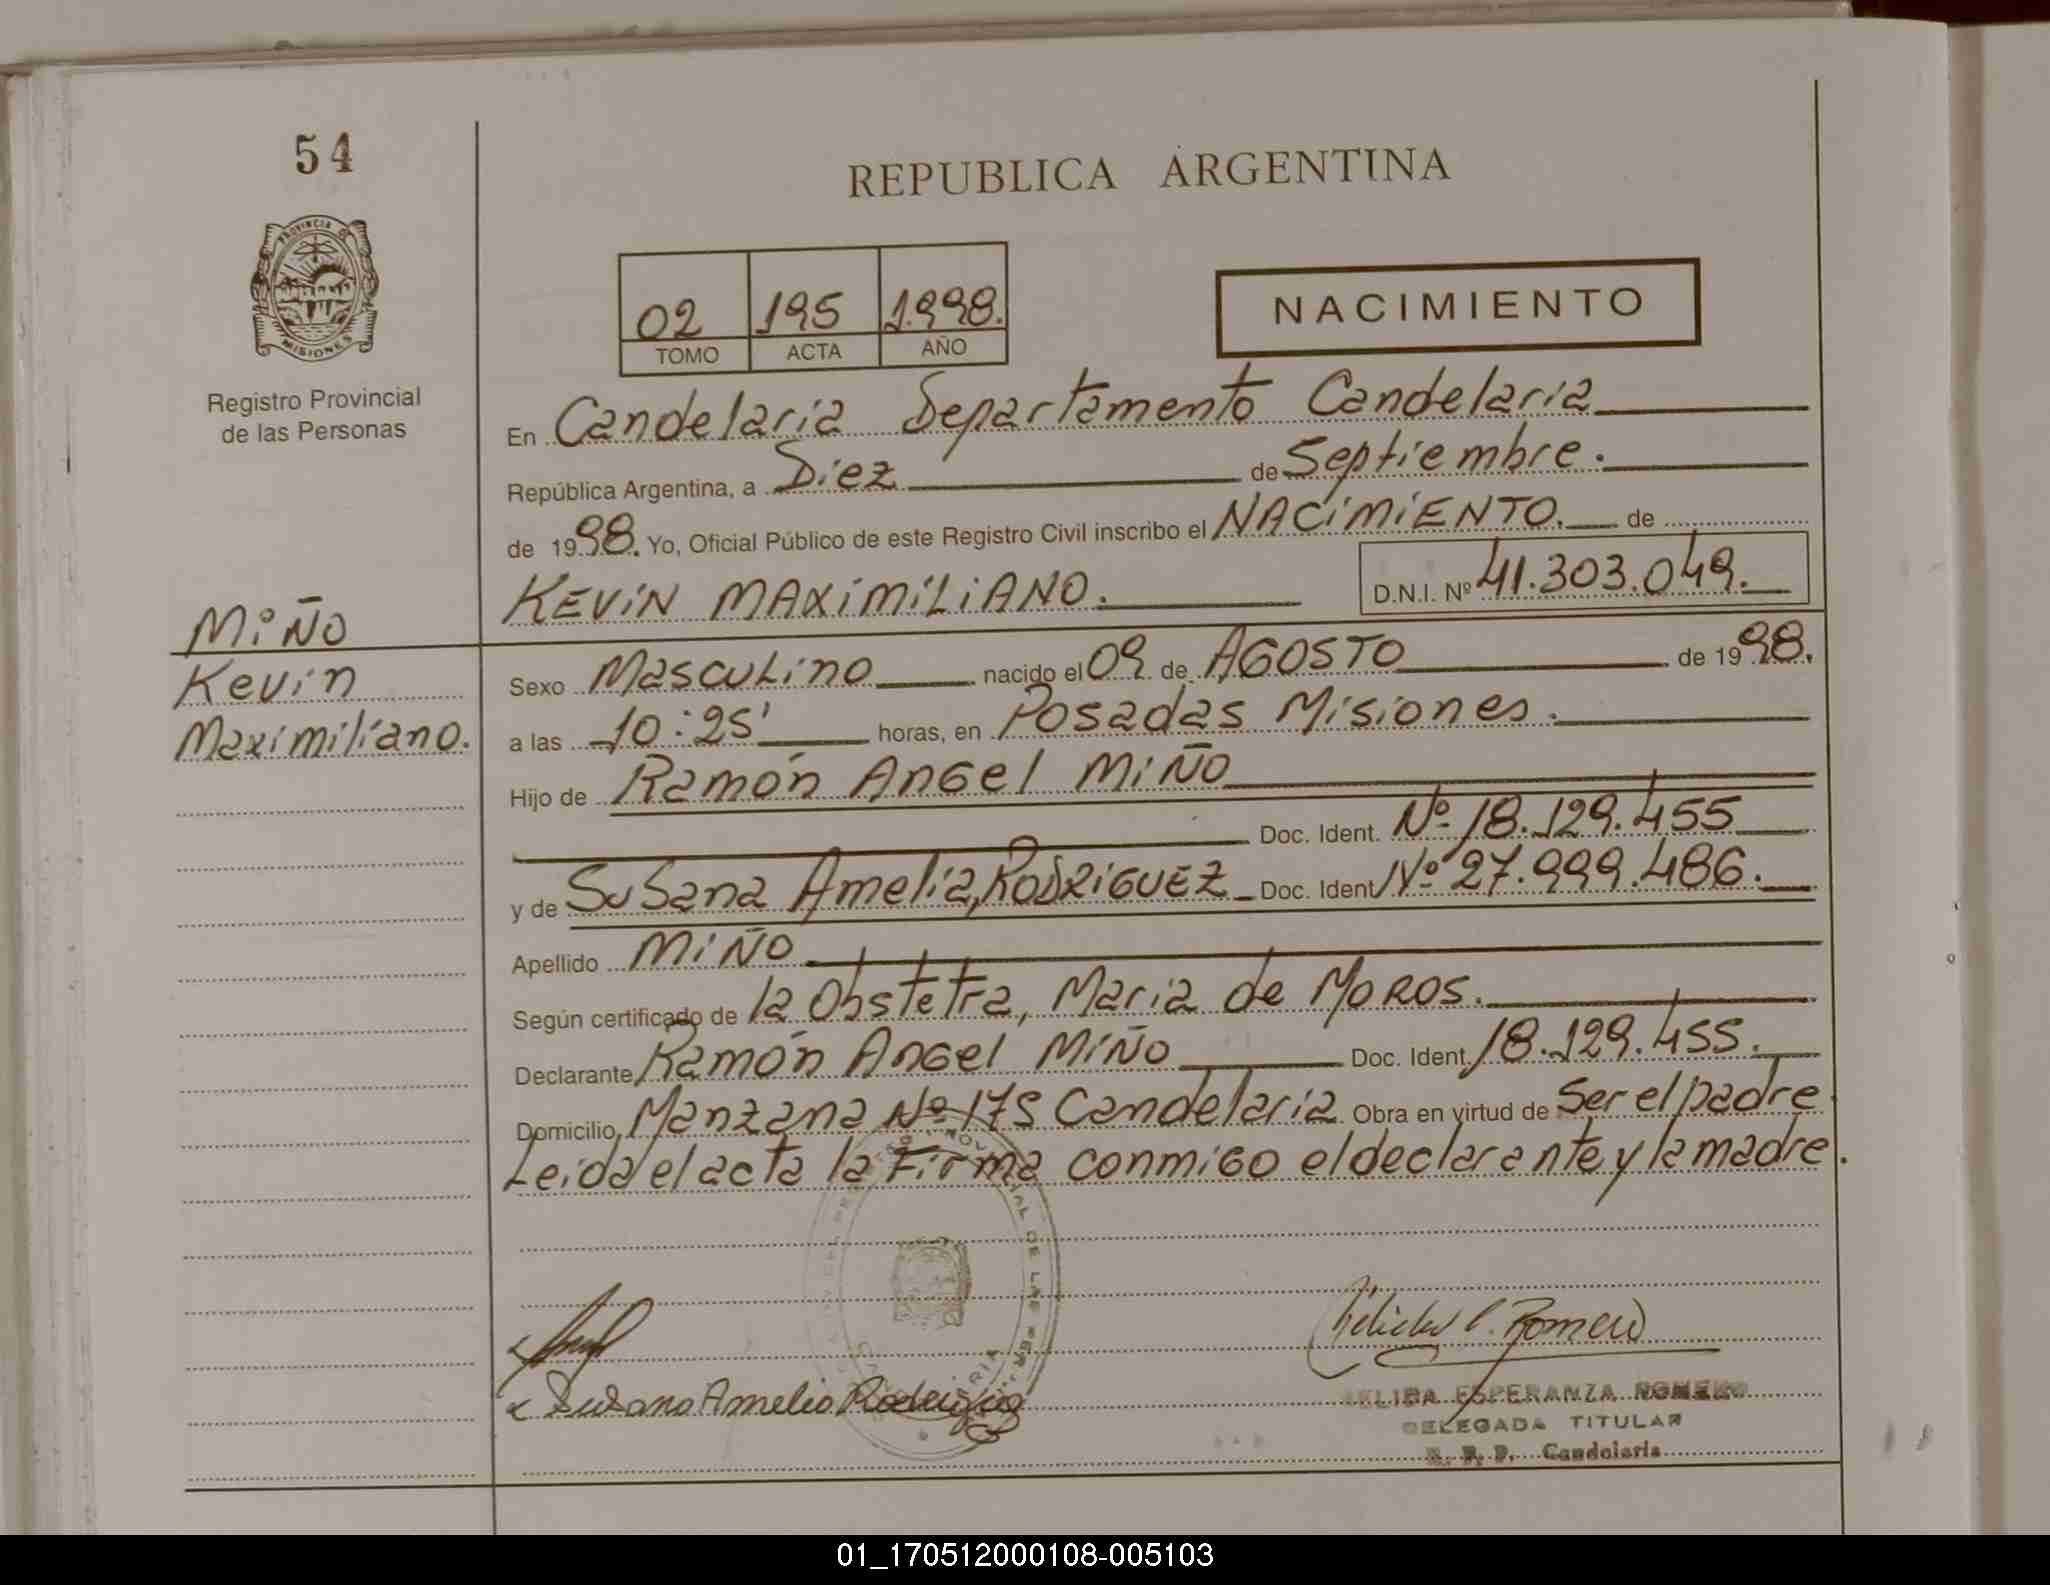 54
REPUBLICA ARGENTINA
PROVINCIA DE
MISIONES
Registro Provincial
de las Personas
02 195 1.998.
TOMO ACTA AÑO
NACIMIENTO
En Candelaria Departamento Candelaria
República Argentina, a Diez de Septiembre.
de 1998. Yo, Oficial Público de este Registro Civil inscribo el NACIMIENTO. de
KEVIN MAXIMILIANO. D.N.I. Nº 41.303.049.
MIÑO
Kevin
Maximiliano.
Sexo Masculino nacido el 09 de AGOSTO de 1998.
a las 10:25' horas, en Posadas Misiones.
Hijo de Ramón Angel MIÑO
Doc. Ident. Nº 18.129.455
y de Susana Amelia, RODRIGUEZ Doc. Ident Nº 27.999.486.
Apellido MIÑO
Según certificado de la Obstetra, Maria de MOROS.
Declarante Ramón Angel MIÑO Doc. Ident. 18.129.455.
Domicilio Manzana Nº 175 Candelaria Obra en virtud de Ser el padre
Leida el acta la Firma conmigo el declarante y la madre.
Susana Amelia Rodriguez
ESPERANZA ROMERO
DELEGADA TITULAR
R. P. P. Candelaria
01_170512000108-005103